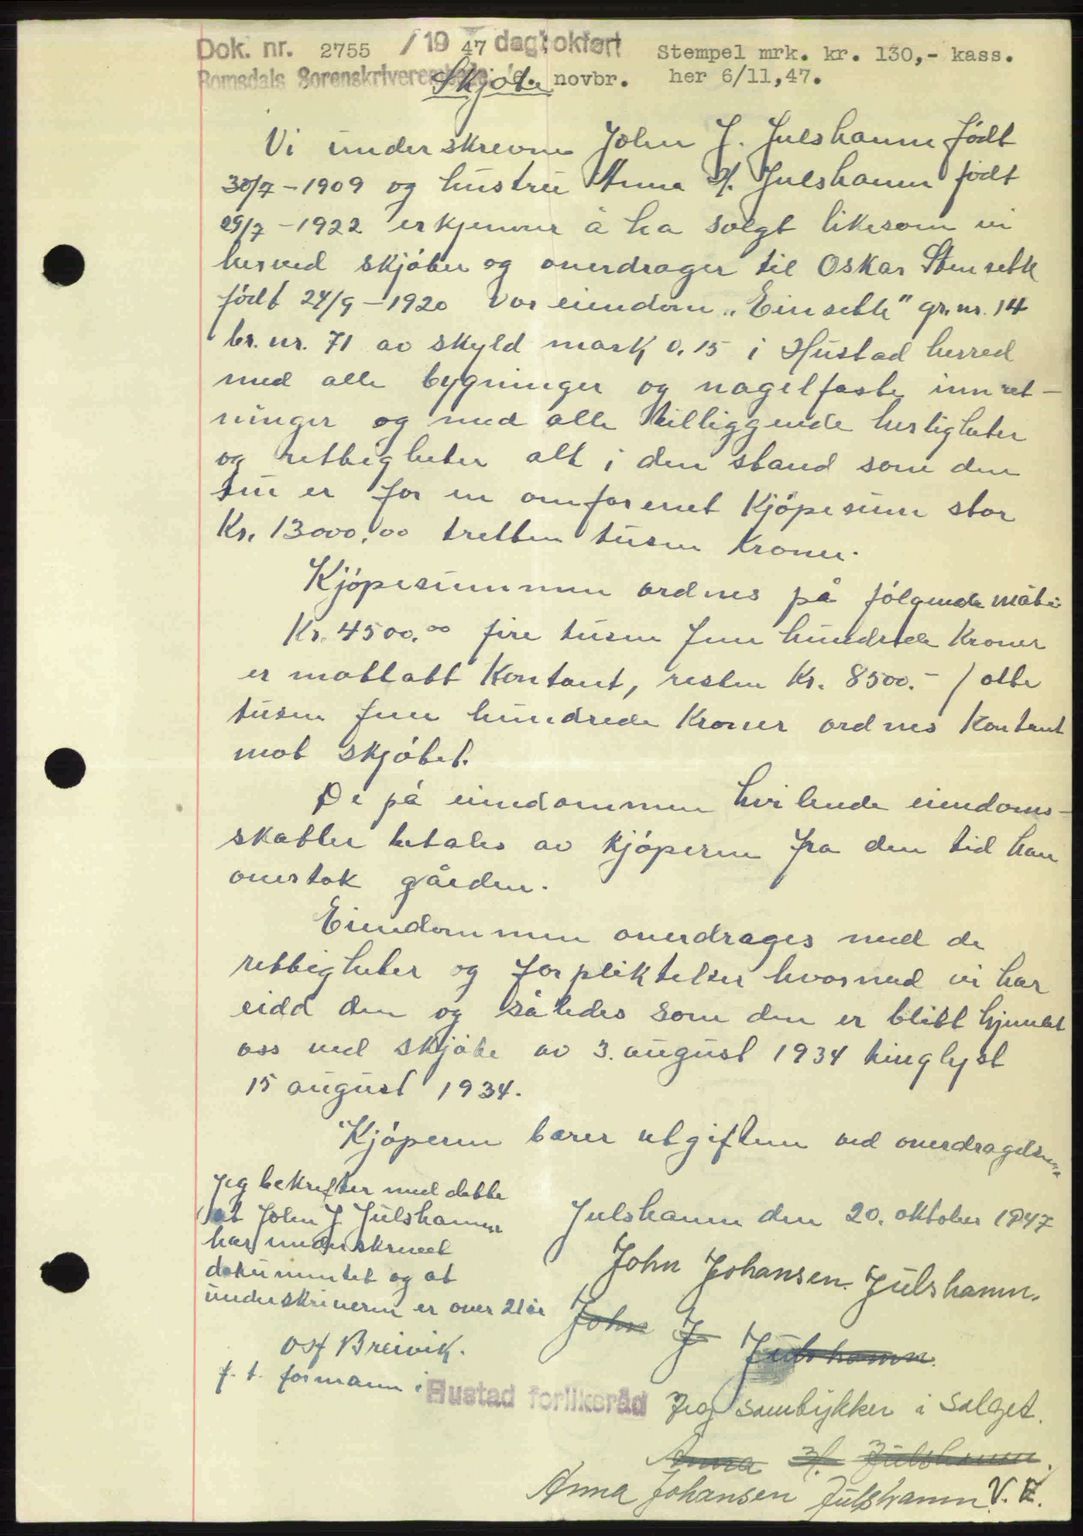 Dok. nr. 2755 / 19 47 dagbokført Stempel mrk. kr. 130,- kass.
Romsdals Sorenskriverembede 6. novbr. her 6/11,47.
Skjøte
Vi underskrevne John J. Julshamn født
30/7-1909 og hustru Anna J. Julshamn født
29/7-1922 erkjenner å ha solgt likesom vi
herved skjøter og overdrager til Oskar Stensøth
født 24/9-1920 vor eiendom „Einseth" gr.nr. 14
br.nr. 71 av skyld mark 0.15 i Hustad herred
med alle bygninger og nagelfaste innret-
ninger og med alle tilliggende herligheter
og rettigheter alt i den stand som den
nu er for en omforenet kjøpesum stor
Kr. 13000.00 tretten tusen kroner.
Kjøpesummen ordnes på følgende måte
Kr. 4500.00 fire tusen fem hundrede kroner
er mottatt kontant, resten Kr. 8500.- / otte
tusen fem hundrede kroner ordnes kontant
mot skjøtet.
De på eiendommen hvilende eiendoms-
skatter betales av kjøperen fra den tid han
overtok gården.
Eiendommen overdrages med de
rettigheter og forpliktelser hvormed vi har
eidd den og således som den er blitt hjemlet
oss ved skjøte av 3. august 1934 tinglyst
15 august 1934.
Kjøperen bærer utgiftene ved overdragelsen
Julshamn den 20. oktober 1947
John Johansen Julshamn.
John J Julshamn.
Jeg bekrefter med dette
at John J Julshamn
har underskrevet
dokumentet og at
underskriveren er over 21 år
Osf Breivik.
f. t. formann i Hustad forliksråd
Jeg samtykker i salget.
Anna J. Julshamn.
Anna Johansen Julshamn V. E.